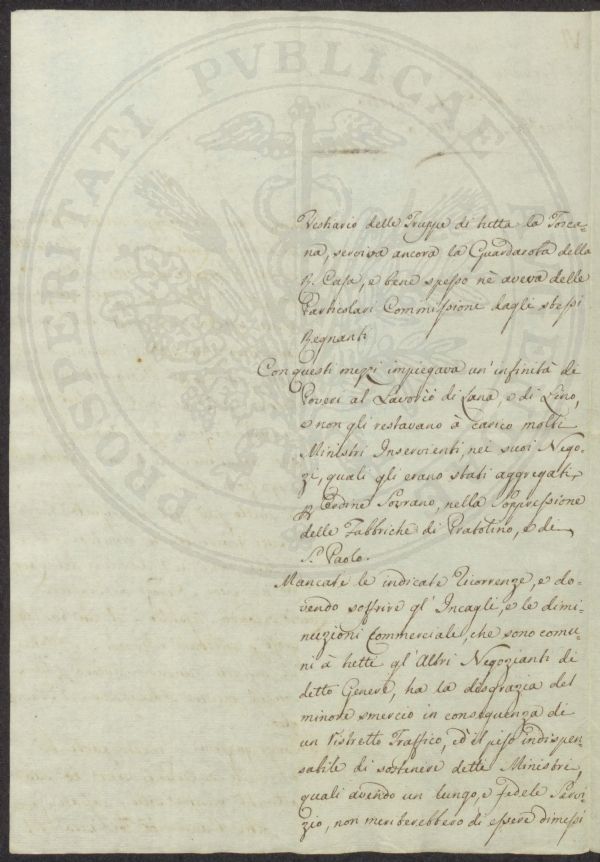 PROSPERITATI PVBLICAE
Vestiario delle Truppe di tutta la Tosca=
na, serviva ancora la Guardaroba della
R. Casa, e bene spesso nè aveva delle
Particolari Commissione dagli stessi
Regnanti
Con questi mezzi impiegava un' infinità di
Poveri al Lavorio di Lana, e di Lino,
e non gli restavano à carico molti
Ministri Inservienti nei suoi Nego=
zi, quali gli erano stati aggregati,
p Ordine Sovrano, nella Soppressione
delle Fabbriche di Pratolino, e di
S. Paolo.
Mancate le indicate Ricorrenze, e do=
vendo soffrire gl' Incagli, e le dimi=
nuzioni Commerciale, che sono comu=
ni à tutti gl' Altri Negozianti di
detto Genere, ha la disgrazia del
minore smercio in consequenza di
un Ristretto Traffico, ed il peso indispen=
sabile di sostenere detti Ministri,
quali avendo un lungo, e fedele Servi=
zio, non meriterebbero di essere dimessi